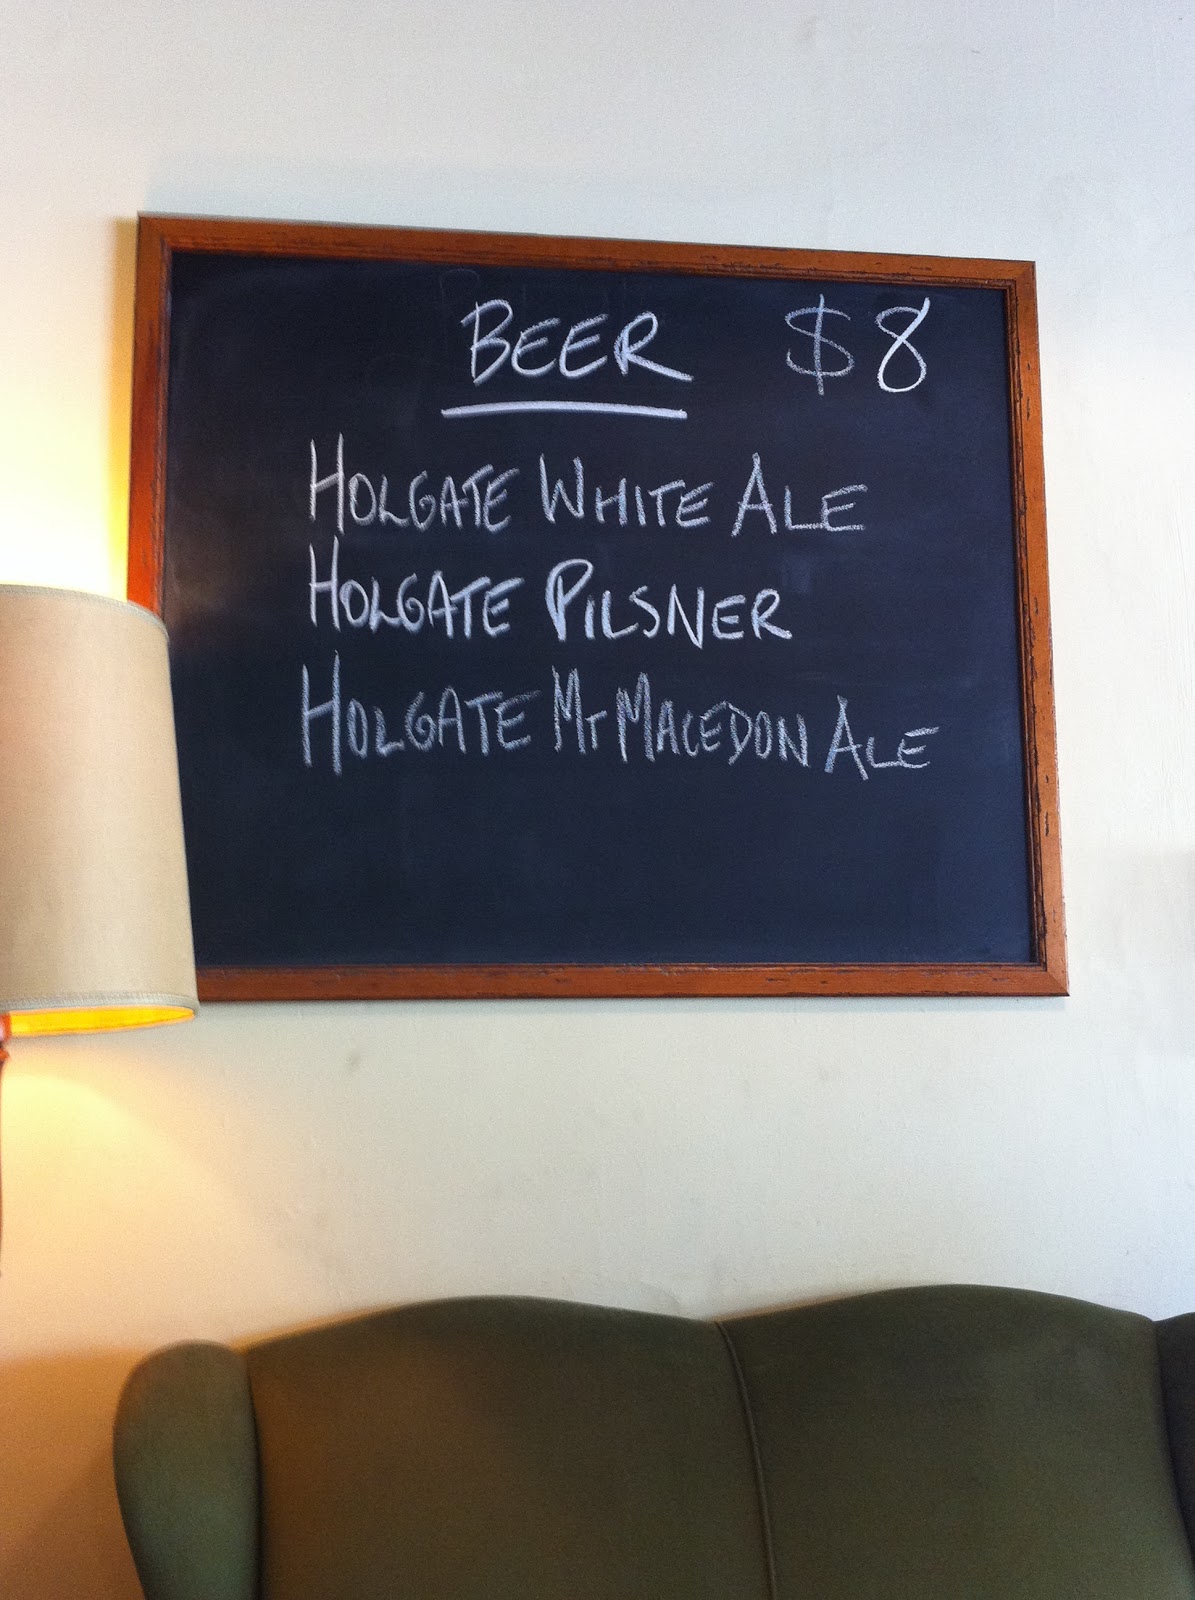 BEER $8
HOLGATE WHITE ALE
HOLGATE PILSNER
HOLGATE MT MACEDON ALE